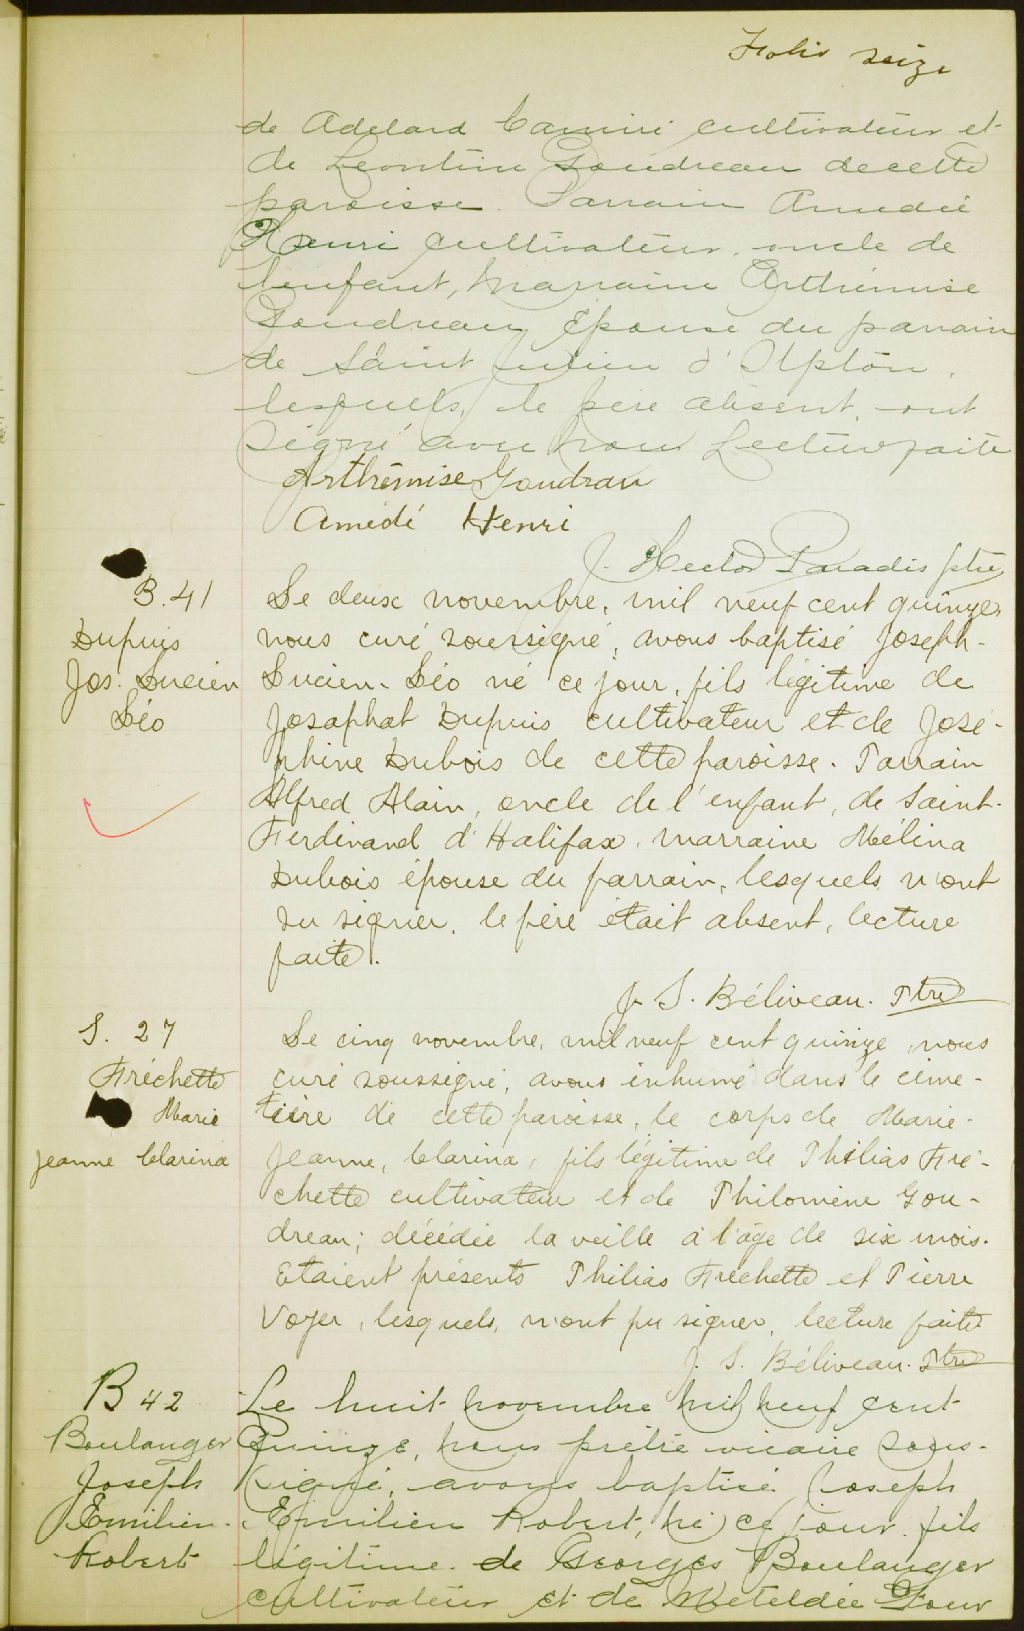 Folio seize
de Adelard Camiré cultivateur et
de Léontine Goudreau de cette
paroisse. Parrain Amédée
Henri cultivateur, oncle de
l'enfant, Marraine Arthémise
Goudreau Épouse du parrain
de Saint d'Upton.
lesquels, le père absent, ont
signé avec nous Lecture faite
Arthémise Goudrau
Amédé Henri
J. Hector Paradis ptre
B. 41
Dupuis
Jos. Lucien
Léo
Le deux novembre, mil neuf cent quinze,
nous curé soussigné, avons baptisé Joseph-
Lucien-Léo né ce jour, fils légitime de
Josaphat Dupuis cultivateur et de José-
phine Dubois de cette paroisse. Parrain
Alfred Alain, oncle de l'enfant, de Saint-
Ferdinand d'Halifax, marraine Mélina
Dubois épouse du parrain, lesquels n'ont
su signer, le père était absent, lecture
faite.
J. S. Béliveau. Ptre
S. 27
Fréchette
Marie
Jeanne Clarina
Le cinq novembre, mil neuf cent quinze, nous
curé soussigné, avons inhumé dans le cime-
tière de cette paroisse, le corps de Marie-
Jeanne, Clarina, fils légitime de Philias Fré-
chette cultivateur et de Philomène Gou-
dreau; décédée la veille à l'âge de six mois.
Etaient présents Philias Fréchette et Pierre
Voyer, lesquels, n'ont pu signer, lecture faite
J. S. Béliveau. Ptre
B 42
Boulanger
Joseph
Emilien
Robert
Le huit novembre mil neuf cent
Quinze, nous prêtre vicaire sous-
signé, avons baptisé Joseph
Emilien Robert, né ce jour fils
légitime de Georges Boulanger
cultivateur et de Meteldée Four